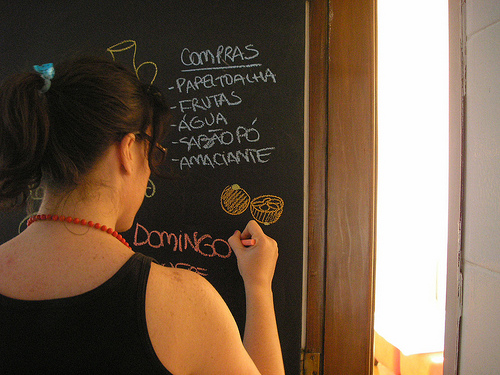 COMPRAS
-PAPEL TOALHA
-FRUTAS
-ÁGUA
-SABÃO PÓ
-AMACIANTE
DOMINGO